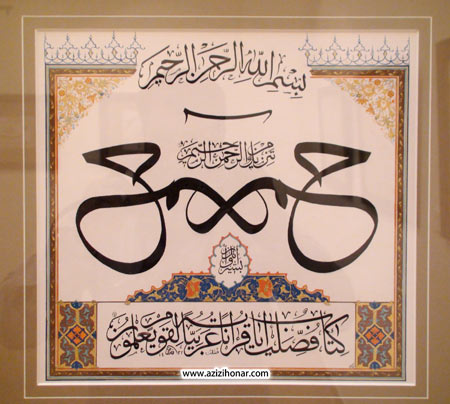 بِسْمِ اللهِ الرَّحْمٰنِ الرَّحِیْمِ
حم
تَنزِیلٌ مِنَ الرَّحْمٰنِ الرَّحِیمِ
کِتَابٌ فُصِّلَتْ آیَاتُهُ قُرْآنًا عَرَبِیًّا لِقَوْمٍ یَعْلَمُونَ
www.azizihonar.com